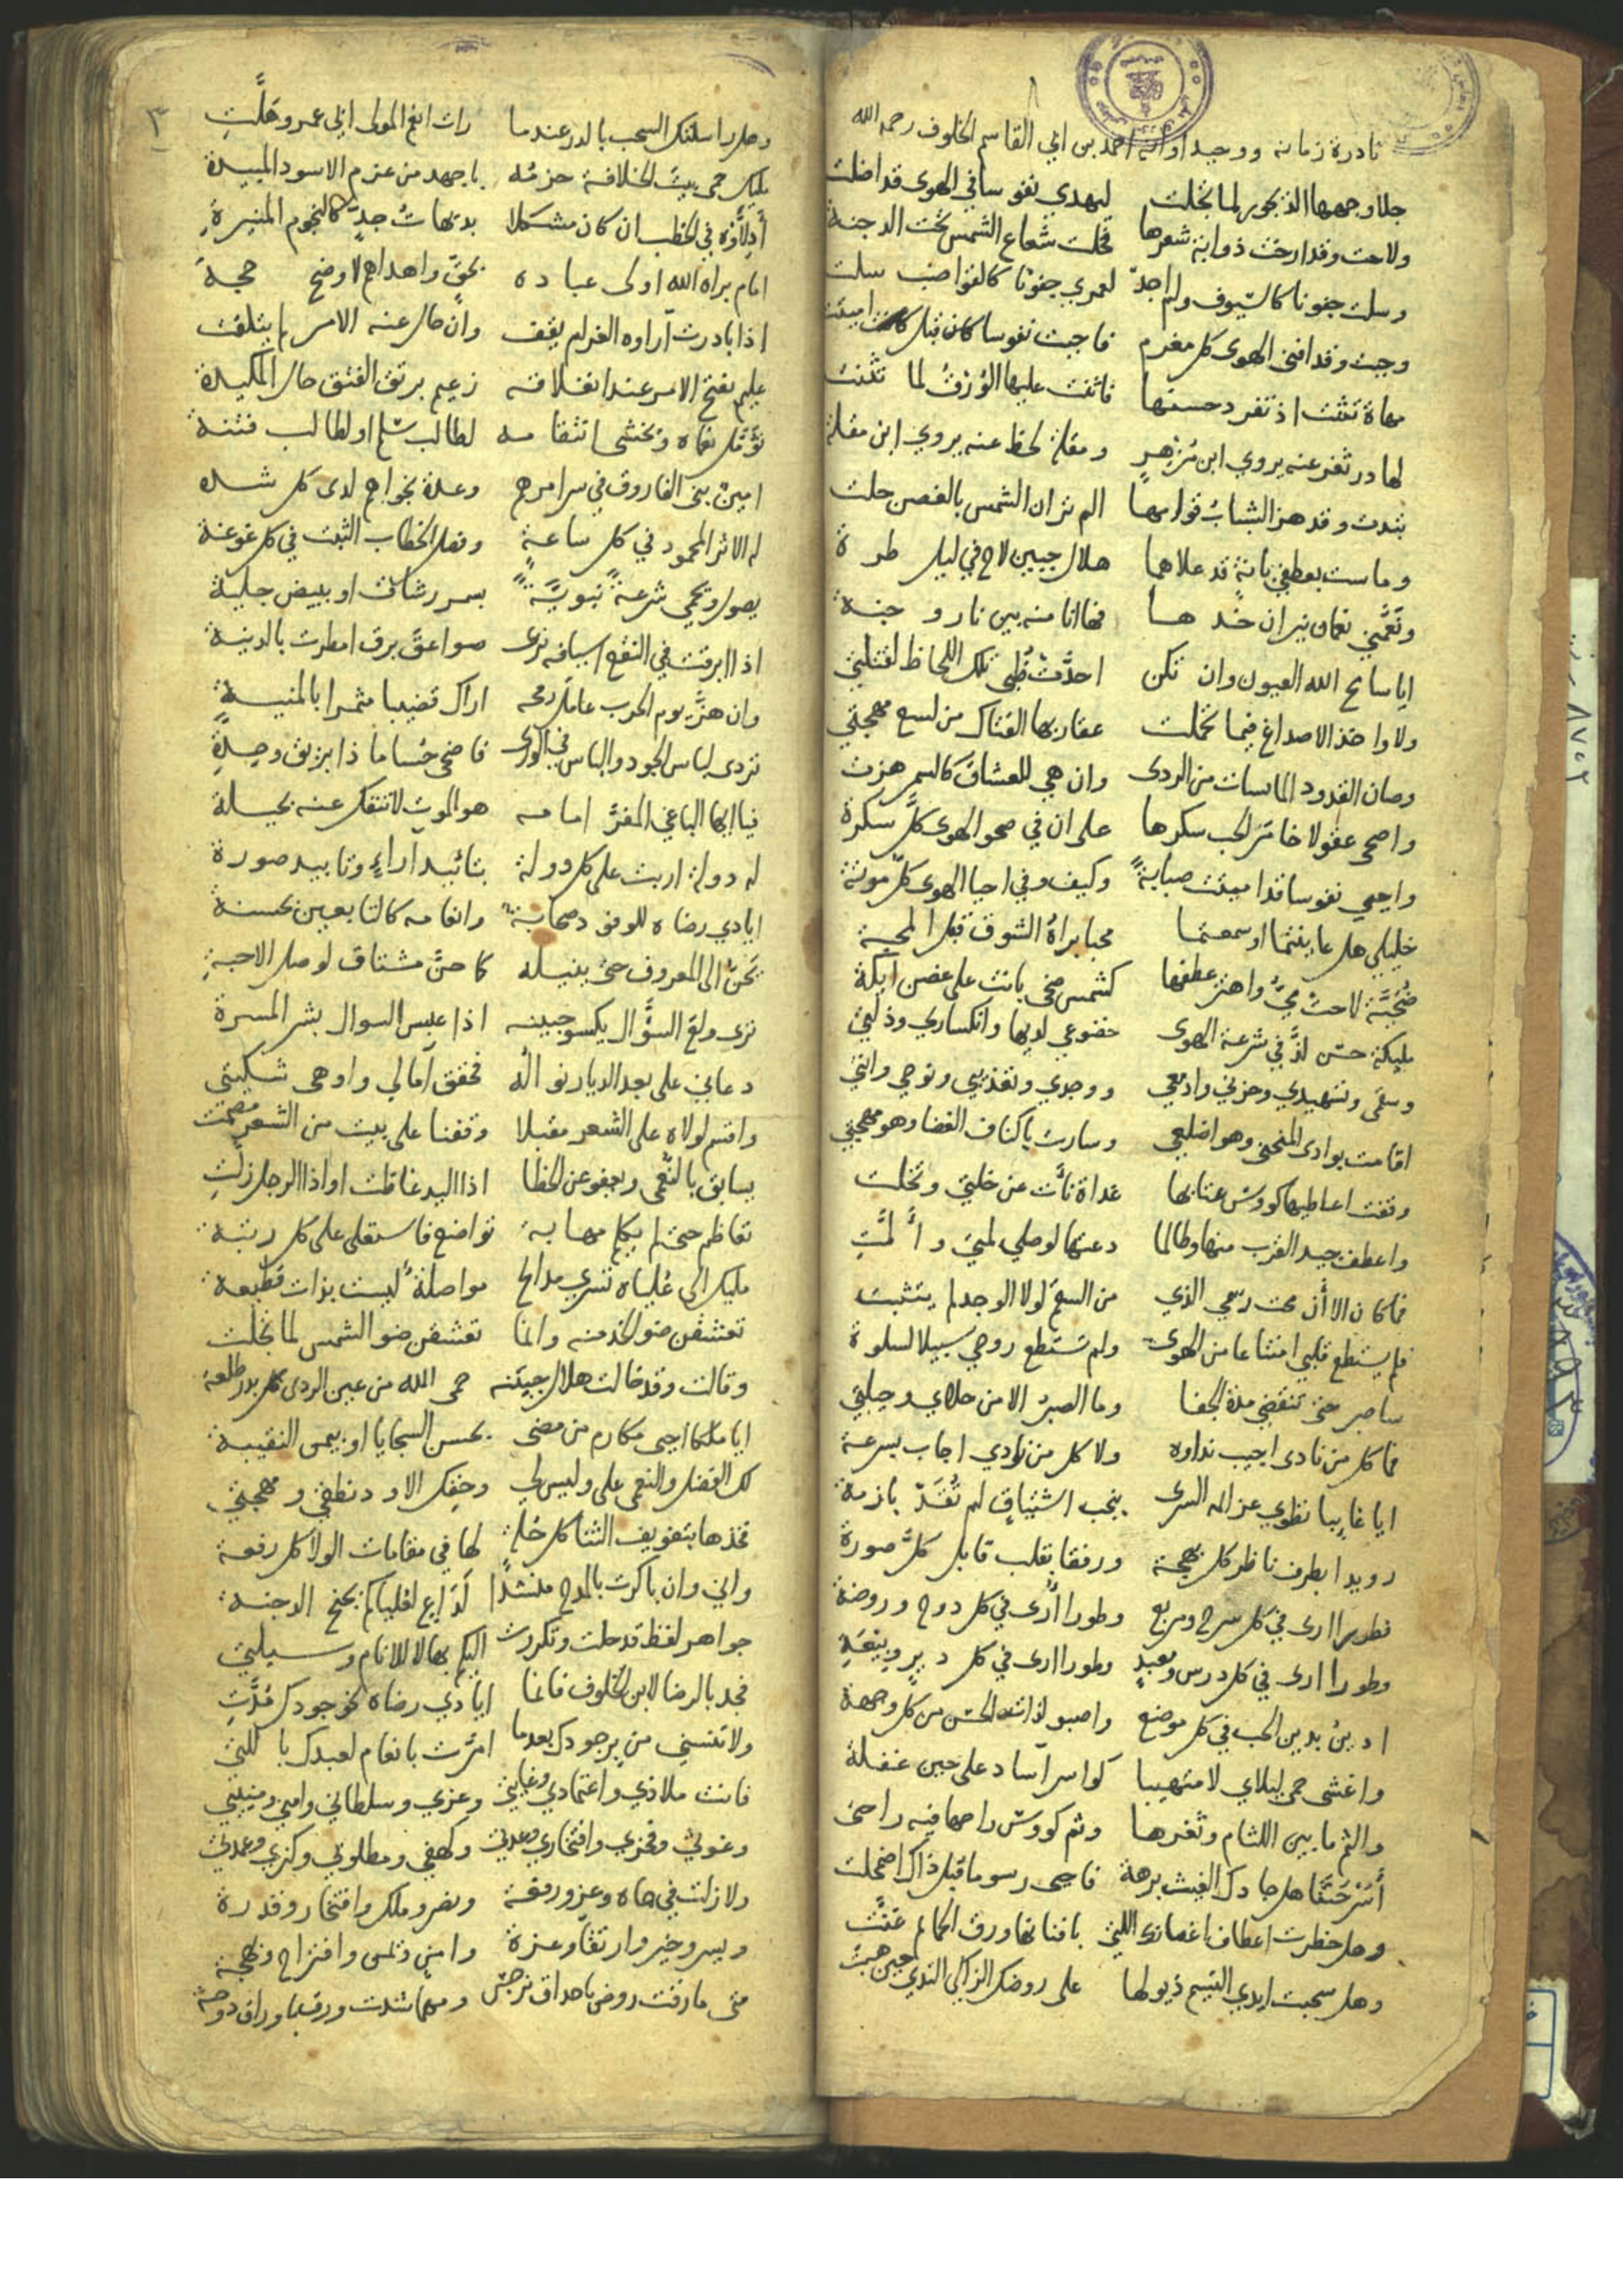 نادرة زمانه ووحيد اوانه احمد بن ابي القاسم الخلوف رحمه الله
جلا وجهها الديجور لما تجلت ليهدي نفوسا في الهوى قد اضلت
ولاحت وقد ارخت ذوابة شعرها فخلت شعاع الشمس تحت الدجنة
وسلت جفونا كالسيوف ولم اجد لعمري جفونا كالقواضب سلت
وحيت وقد افنى الهوى كل مغرم فاحيت نفوسا كان قبل اميتت
مهاة تثنت اذ تفرد حسنها فاثنت عليها الورق لما تثنت
لها در ثغر عنه يروي ابن مزهر ومقلة لحظ عنه يروي ابن مقلة
تبدت وقد هز الشباب قوامها الم تر ان الشمس بالغصن حلت
وماست بعطفي بانة قد علاهما هلال جبين لاح في ليل طرة
ونعمني نعمان نيران خدها فها انا منه بين نار وجنة
ايا سامح الله العيون وان تكن احدت ظبى تلك اللحاظ لقتلتي
ولا واخذ الاصداغ فيما تحملت عقاربها الفتاك من لسع مهجتي
وصان القدود المايسات من الردى وان هي للعشاق كالسمر هزت
واصحى عقولا خامر الحب سكرها على ان في صحو الهوى كل سكرة
واحيي نفوسا قد اميتت صبابة وكيف وفي احيا الهوى كل موتة
خليلي هل عاينتما او سمعتما محبا براه الشوق قبل المحبة
محجبة لاحت لحي واهتز عطفها كشمس ضحى بانت على غصن ايكة
مليكة حسن لذ في شرعة الهوى خضوعي لديها وانكساري وذلتي
وسقمي وتسهيدي وحزني وادمعي ووجدي وتعذيبي ونوحي وانتي
اقامت بوادي المنحنى وهو اضلعي وسارت باكناف الغضا وهو مهجتي
وقفت اعاطيها كووس عتابها غداة نأت عن خلتي وتخلت
واعطف جيد القرب منها وطالما دعتها لوصلي لمتي وألمت
فما كان الا أن محت رسمي الذي من السقم لولا الوجد لم يتثبت
فلم يستطع قلبي امتناعا من الهوى ولم تستطع روحي سبيلا لسلوة
ساصبر حتى تنقضي مدة الجفا وما الصبر الا من حلاي وحيلتي
فما كل من نادى اجيب نداوه ولا كل من نودي اجاب بسرعة
ايا غايبا نطوي عزايمه السرى بنجب اشتياق لم تقد بازمة
رويدا بطرف ناظر كل بهجة ورفقا بقلب قابل كل صورة
فطورا ارى في كل سرح ومربع وطورا أرى في كل دوح وروضة
وطورا ارى في كل درس ومعبد وطورا ارى في كل دير وبيعة
ادين بدين الحب في كل موضع واصبو لذات الحسن من كل وجهة
واغشى حمى ليلاي لا متهيبا كواسر آساد على حين غفلة
والثم ما بين اللثام وثغرها وثم كووس راحها فيه راحتي
أسرحتنا هل جادك الغيث برهة فاحيى رسوما قبل ذاك اضمحلت
وهل خطرت اعطاف اغصانك اللتي بافنانها ورق الحمايم غنت
وهل سحبت ايدي النسيم ذيولها على روضك الزاكي الندي حين هبت
٣
وهل راسلتك السحب بالدر عندما رات انعم المولى ابي عمرو هلت
مليك حمى بيت الخلافة حزمه باجهد من عزم الاسود المبيدة
أدلاؤه في الخطب ان كان مشكلا بديهات جد كالنجوم المنيرة
امام براه الله اولى عباده بحق واهداهم لاوضح محجة
اذا بادرت آراوه الغر لم يقف وان حال عنه الامر لم يتلفت
عليم بفتح الامر عند انغلاقه زعيم برتق الفتق حال المكيدة
تؤمل نعماه وتخشى انتقامه لطالب سلم او لطالب فتنة
امين بني الفاروق في سرامرهم وعدة نجواهم لدى كل شده
له الاثر المحمود في كل ساعة وفصل الخطاب الثبت في كل غوغة
يصول ويحمي شرعة نبوية بسمر رشاق او ببيض جلية
اذا ابرقت في النقع اسيافه ترى صواعق برق امطرت بالدنية
وان هز يوم الحرب عامل رمحه اراك قضيبا مثمرا بالمنية
تردى لباس الجود والباس في الورى فاضحى حساما ذا بريق وحدة
فيا ايها الباغي المغر امامه هو الموت لا تنفك عنه بحيلة
له دولة اربت على كل دولة بتائيد آراء وتابيد صورة
ايادي رضاه للوفود صحابة وانعامه كالتابعين بحسنة
يحن الى المعروف حتى ينيله كما حن مشتاق لوصل الاحبة
ترى ولع السؤال يكسو جبينه اذا عبس السوال بشر المسرة
دعاني على بعد الديار نواله فحقق آمالي واوهى شكيتي
واقسم لولاه على الشعر مقبلا وقفنا على بيت من الشعر مصمت
يسابق بالنعمى ويعفو عن الخطا اذا اليد غاقلت او اذا الرجل زلت
تعاظم حتى لم يكلم مهابة تواضع فاستعلى على كل رتبة
مليك الى علياه تسري مدايح مواصلة ليست بذات قطيعة
تعشقن ضو الخد منه وانما تعشقن ضو الشمس لما تجلت
وقالت وقد خالت هلال جبينه حمى الله من عين الردى كل بدر طلعة
ايا ملكا احيى مكارم من مضى بحسن السجايا او بيمن النقيبة
لك الفضل والنعمى على وليس لي وحقك الا ود نطقي ومهجتي
فخذها بتفويف الثنا كل حلة لها في مقامات الولا كل رفعة
واني وان باكرت بالمدح منشدا لداع لعلياكم بجنح الدجنة
جواهر لفظ قد حلت وتكررت اليكم بها لا للانام وسيلتي
فجد بالرضا لابن الخلوف فانما ايادي رضاه نحو جودك مدت
ولا تنسني من يرجودك بعدما امرت بانعام لعبدك باللتي
فانت ملاذي واعتمادي وغايتي وعزي وسلطاني وامني ومنيتي
وغوثي وفخري وافتخاري وعدتي وكهفي ومطلوبي وكنزي وعمدتي
ولا زلت في جاه وعز ورفعة ونصر وملك وافتخار وقدرة
ويسر وخير وارتقاء وعزة وامن ويمن وافتراح وبهجة
متى مارقت روض باحداق نرجس ومهما شدت ورق باوراق دوحة